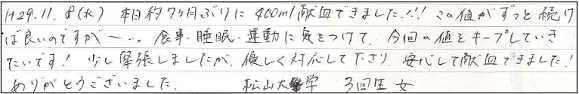 H29.11.8(水) 本日約7ヶ月ぶりに400ml献血できました!!! この値がずっと続け
ば良いのですが…。食事・睡眠・運動に気をつけて、今回の値をキープしていき
たいです! 少し緊張しましたが、優しく対応して下さり、安心して献血できました!
ありがとうございました。 松山大学 3回生 女